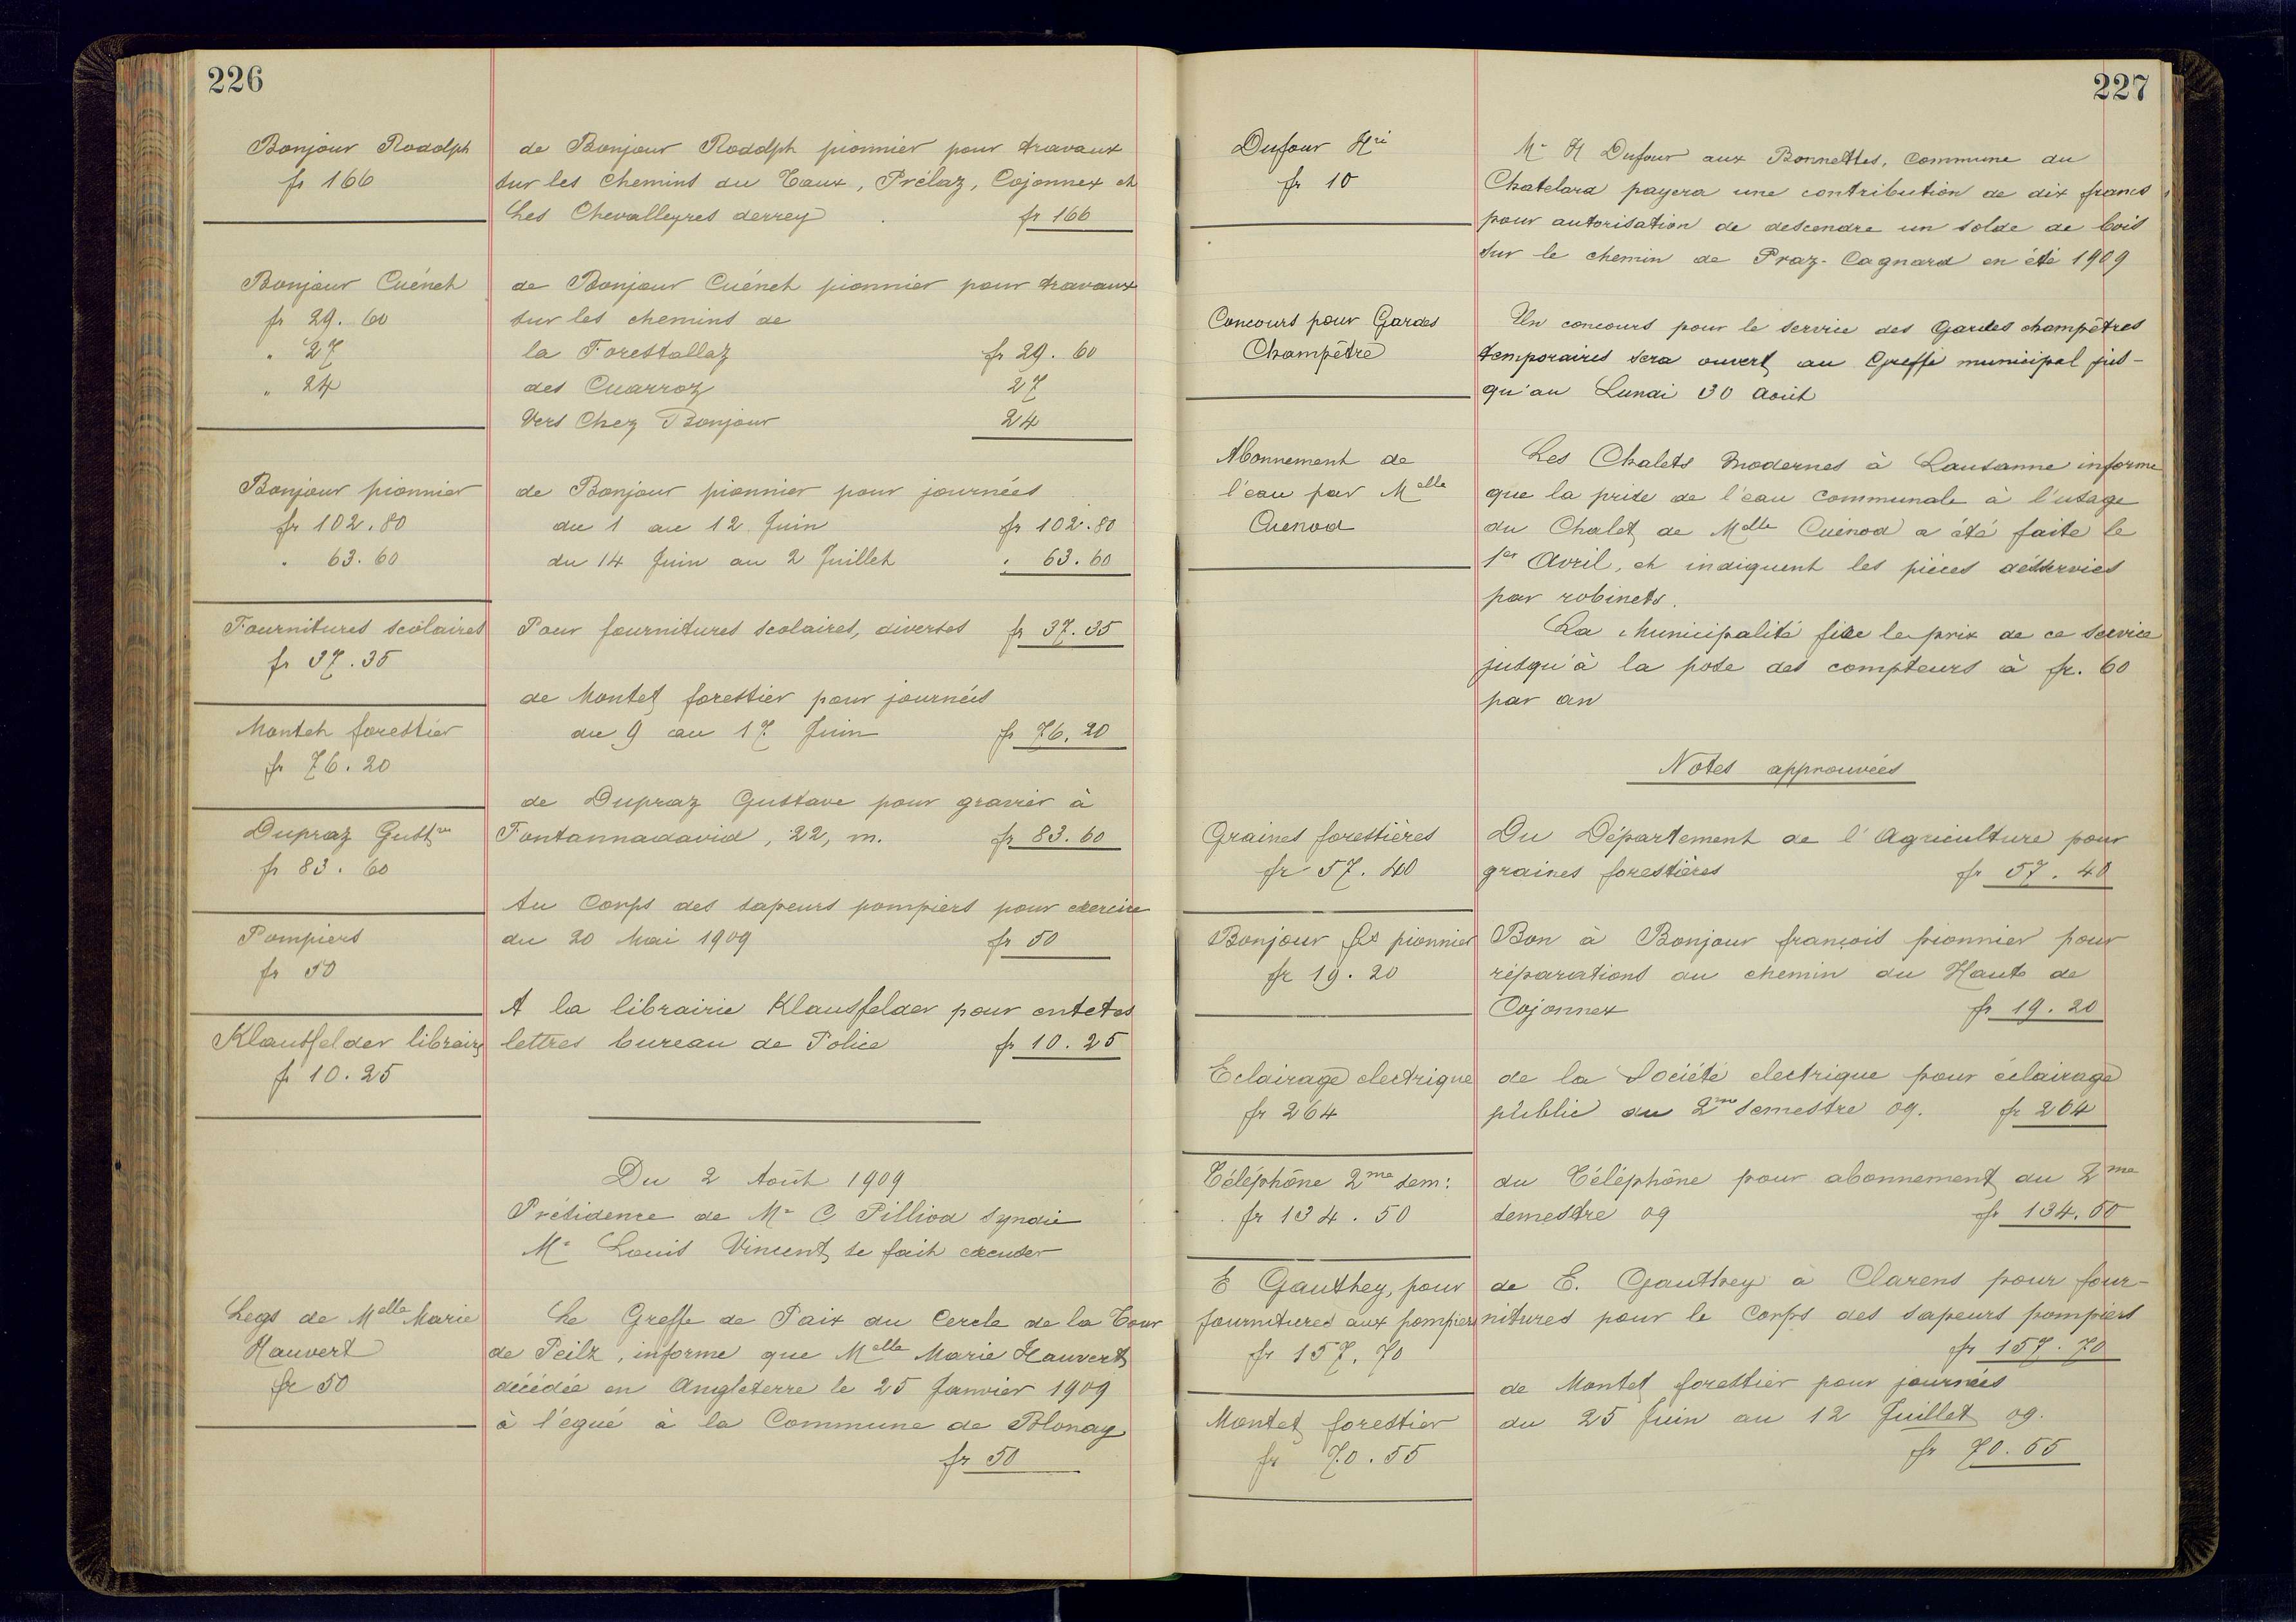 226
Bonjour Rodolph
fr 166
de Bonjour Rodolph pionnier pour travaux
sur les chemins du Taux, Prélaz, Cojonnex et
Les Chevalleyres derrey fr 166
Bonjour Cuénet
fr 29.60
" 27
" 24
de Bonjour Cuénet pionnier pour travaux
sur les chemins de
la Forestallaz fr 29.60
des Cuarroz 27
Vers Chez Bonjour 24
Bonjour pionnier
fr 102.80
" 63.60
de Bonjour pionnier pour journées
du 1 au 12 Juin fr 102.80
du 14 Juin au 2 Juillet " 63.60
Fournitures scolaires
fr 37.35
Pour fournitures scolaires, diverses fr 37.35
Montet forestier
fr 76.20
de Montet forestier pour journées
du 9 au 17 Juin fr 76.20
Dupraz Gustve
fr 83.60
de Dupraz Gustave pour gravier à
Fontannadavid, 22, m. fr 83.60
Pompiers
fr 50
Au Corps des sapeurs pompiers pour exercice
du 20 Mai 1909 fr 50
Klausfelder libraire
fr 10.25
A la librairie Klausfelder pour entetes
lettres bureau de Police fr 10.25
Du 2 Août 1909
Présidence de Mr C Pilliod Syndic
Mr Louis Vincent se fait excuser
Legs de Melle Marie
Hauvert
fr 50
Le Greffe de Paix du Cercle de la Tour
de Peilz, informe que Melle Marie Hauvert
décédée en Angleterre le 25 Janvier 1909
à légué à la Commune de Blonay
fr 50
227
Dufour Hri
fr 10
Mr H Dufour aux Bonnettes, Commune du
Chatelard payera une contribution de dix francs
pour autorisation de descendre un solde de bois
sur le chemin de Praz-Cagnard en été 1909
Concours pour Gardes
Champêtre
Un concours pour le service des Gardes champêtres
temporaires sera ouvert au Greffe municipal jus-
qu'au Lundi 30 Août
Abonnement de
l'eau par Melle
Cuenod
Les Chalets Modernes à Lausanne informe
que la prise de l'eau communale à l'usage
du Chalet de Melle Cuénod a été faite le
1er Avril, et indiquent les pièces desservies
par robinets.
La Municipalité fixe le prix de ce service
jusqu'à la pose des compteurs à fr. 60
par an
Notes approuvées
Graines forestières
fr 57.40
Du Département de l'Agriculture pour
graines forestières fr 57.40
Bonjour frs pionnier
fr 19.20
Bon à Bonjour françois pionnier pour
réparations au chemin du Haut de
Cojonnex fr 19.20
Eclairage electrique
fr 264
de la Société electrique pour éclairage
public du 2me semestre 09. fr 264
Téléphône 2me sem:
fr 134.50
du Téléphône pour abonnement du 2me
semestre 09 fr 134.50
E Gauthey, pour
fournitures aux pompiers
fr 157.70
de E. Gauthey à Clarens pour four-
nitures pour le Corps des sapeurs pompiers
fr 157.70
Montet forestier
fr 70.55
de Montet forestier pour journées
du 25 Juin au 12 Juillet 09.
fr 70.55